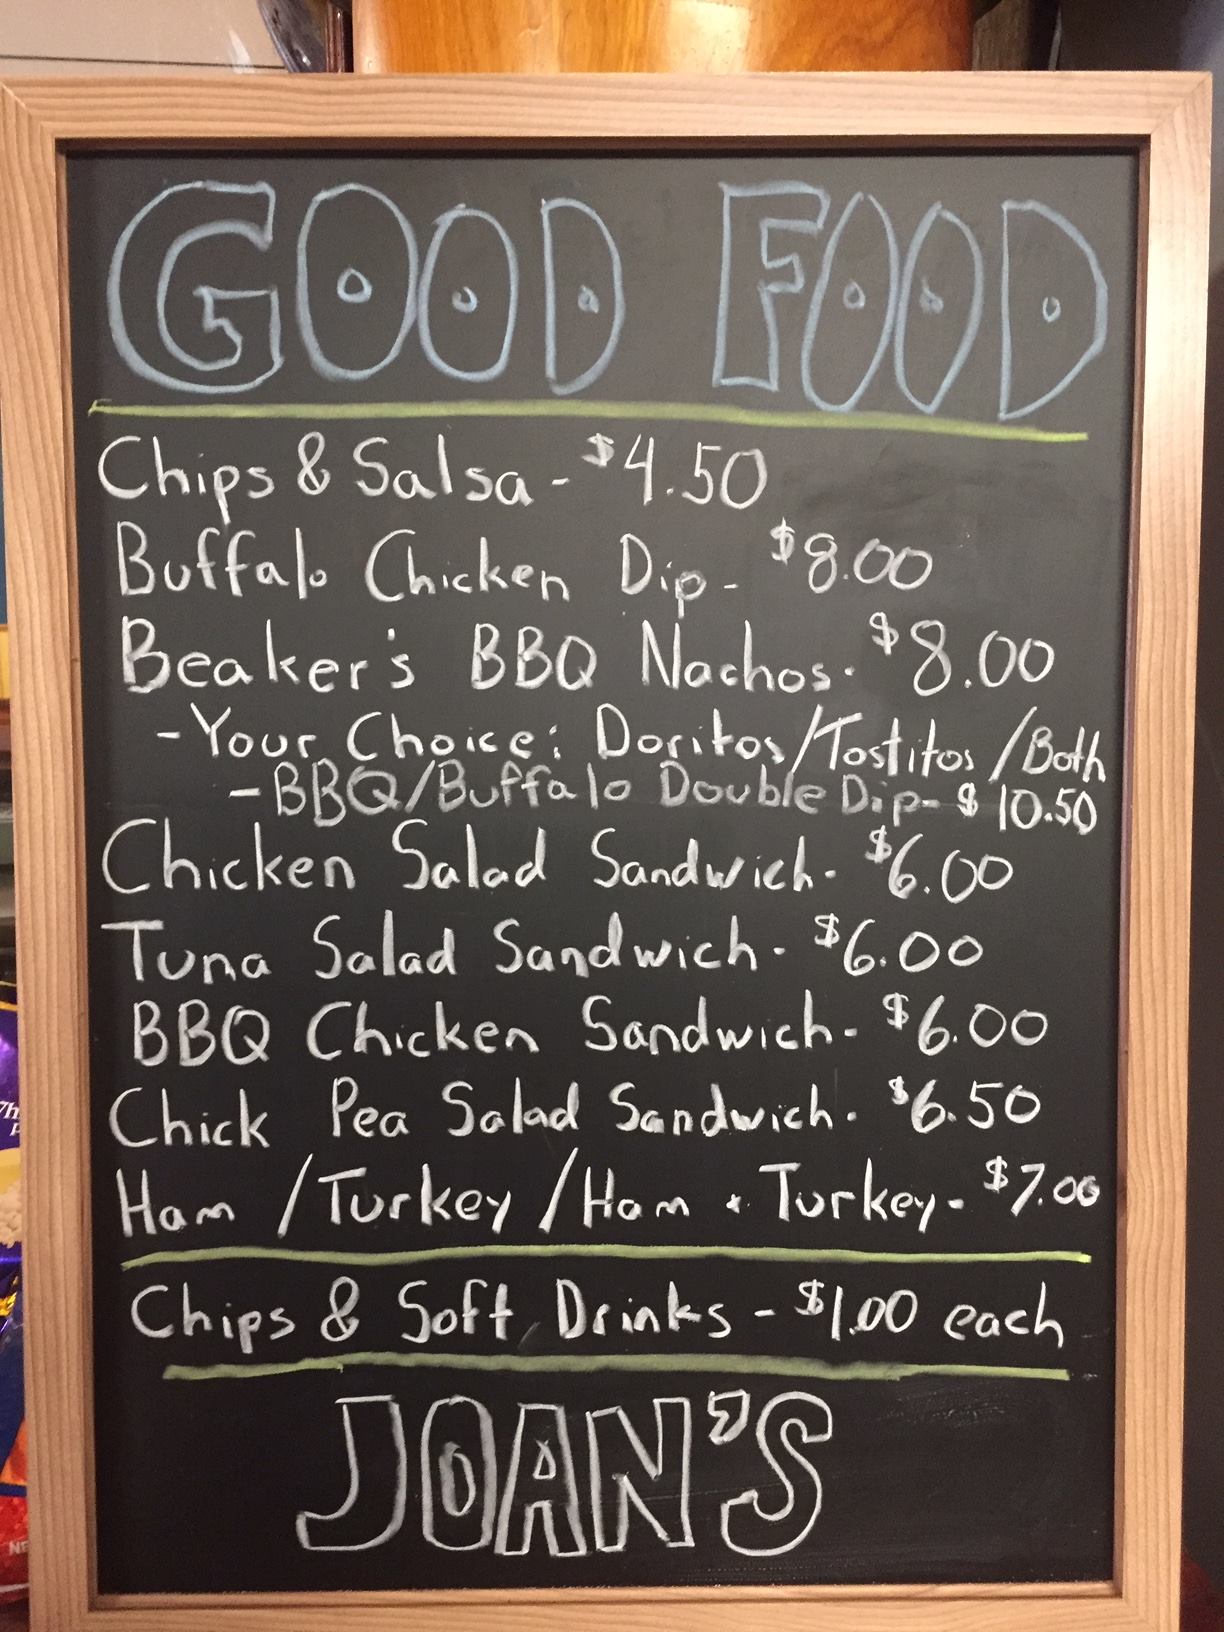 GOOD FOOD
Chips & Salsa - $4.50
Buffalo Chicken Dip - $8.00
Beaker's BBQ Nachos - $8.00
- Your Choice: Doritos/Tostitos/Both
- BBQ/Buffalo Double Dip - $10.50
Chicken Salad Sandwich - $6.00
Tuna Salad Sandwich - $6.00
BBQ Chicken Sandwich - $6.00
Chick Pea Salad Sandwich - $6.50
Ham / Turkey / Ham + Turkey - $7.00
Chips & Soft Drinks - $1.00 each
JOAN'S